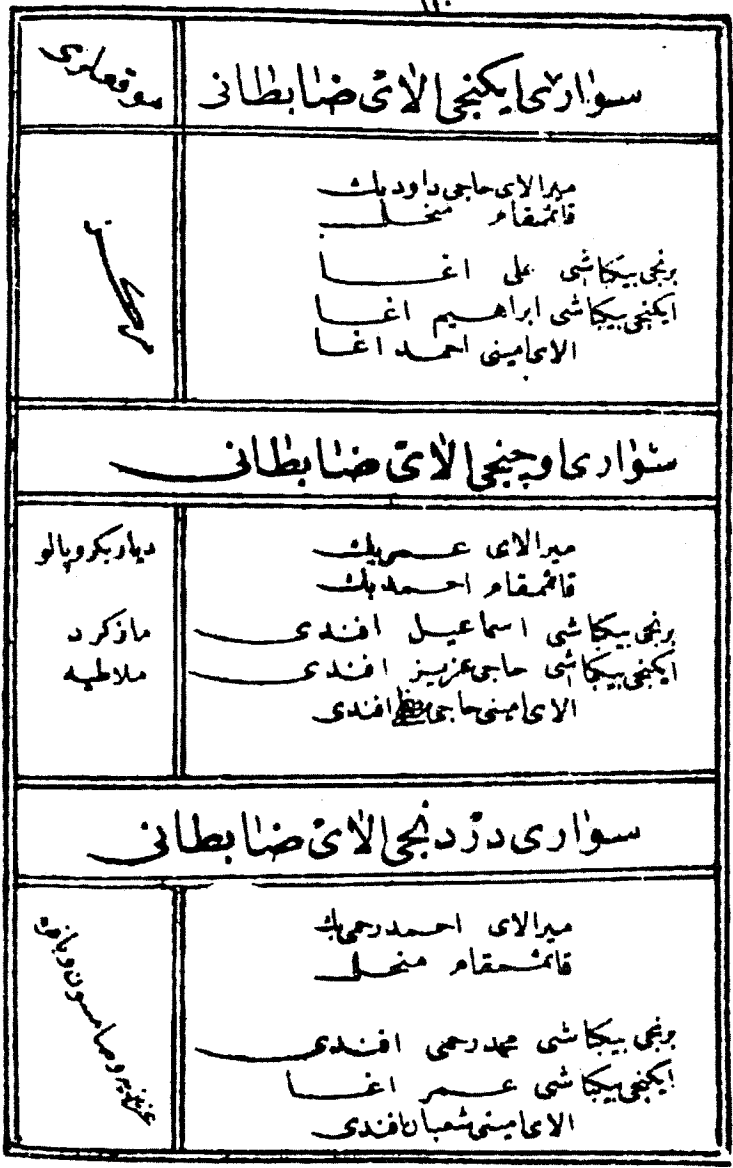 سواری ایکنجی الای ضابطانی
موقعلری
میرالای حاجی داود بك
قائممقام منحل
برنجی بیکباشی علی اغا
ایکنجی بیکباشی ابراهیم اغا
الای امینی احمد اغا
مرکز
سواری اوچنجی الای ضابطانی
میرالای عمر بك
قائممقام احمد بك
برنجی بیکباشی اسماعیل افندی
ایکنجی بیکباشی حاجی عزیز افندی
الای امینی حاجی افندی
دیاربکر و پالو
مازکرد
ملاطیه
سواری دردنجی الای ضابطانی
میرالای احمد رحمی بك
قائممقام منحل
برنجی بیکباشی محمد رحمی افندی
ایکنجی بیکباشی عمر اغا
الای امینی شعبان افندی
و صامسون و بافره